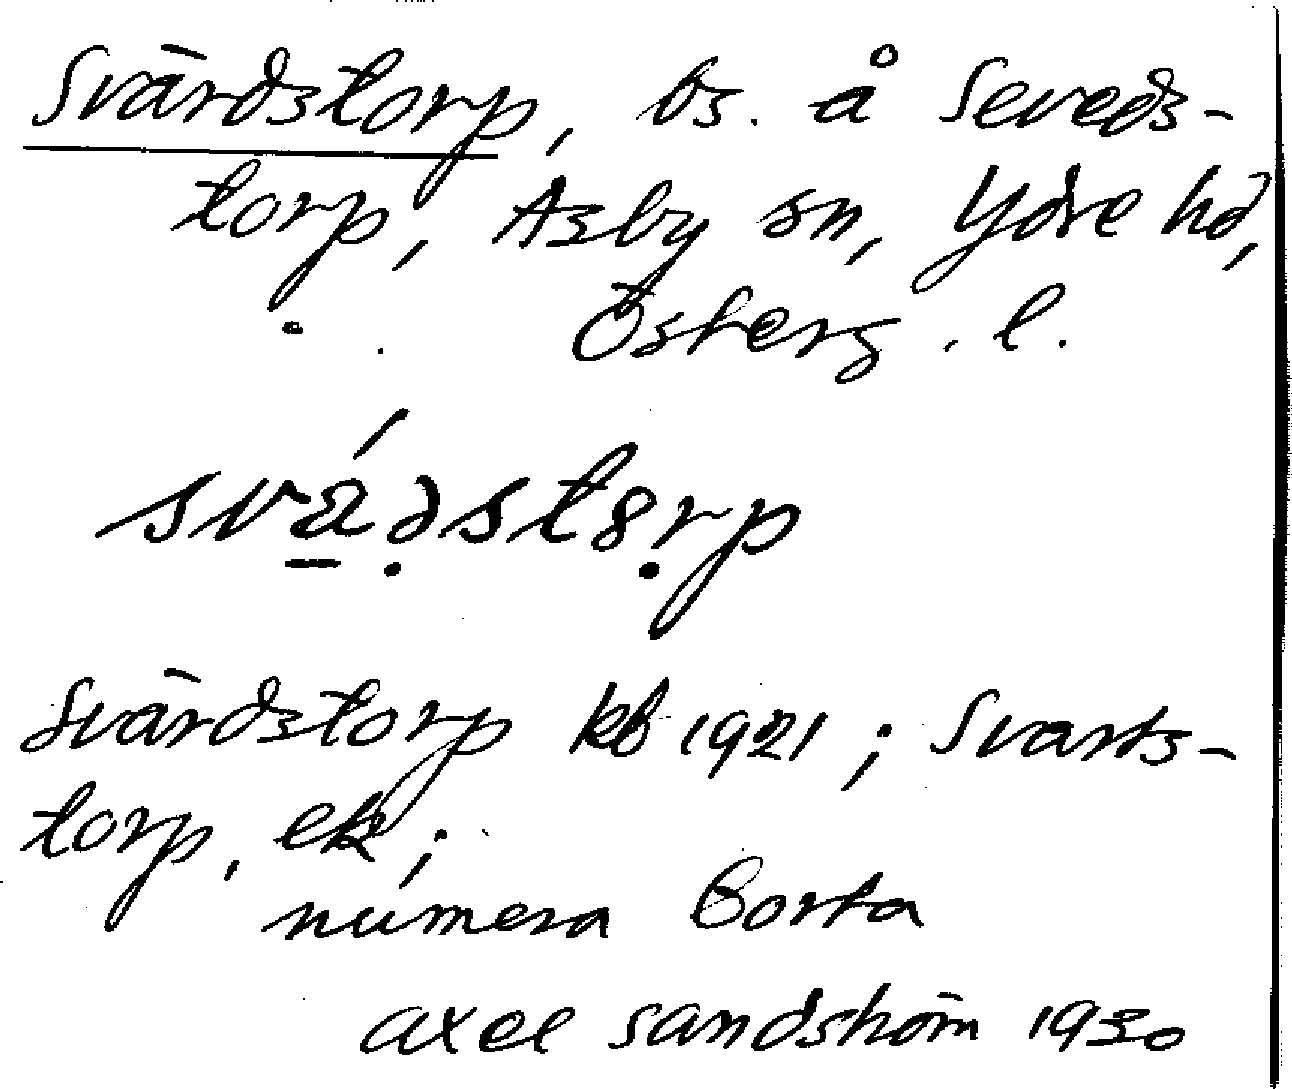 Svärdstorp, bs. å Seveds-
torp, Asby sn, Ydre hd,
Österg. l.
Svärdstorp kb 1921; Svarts-
torp, ek;
numera borta
Axel Sandström 1930